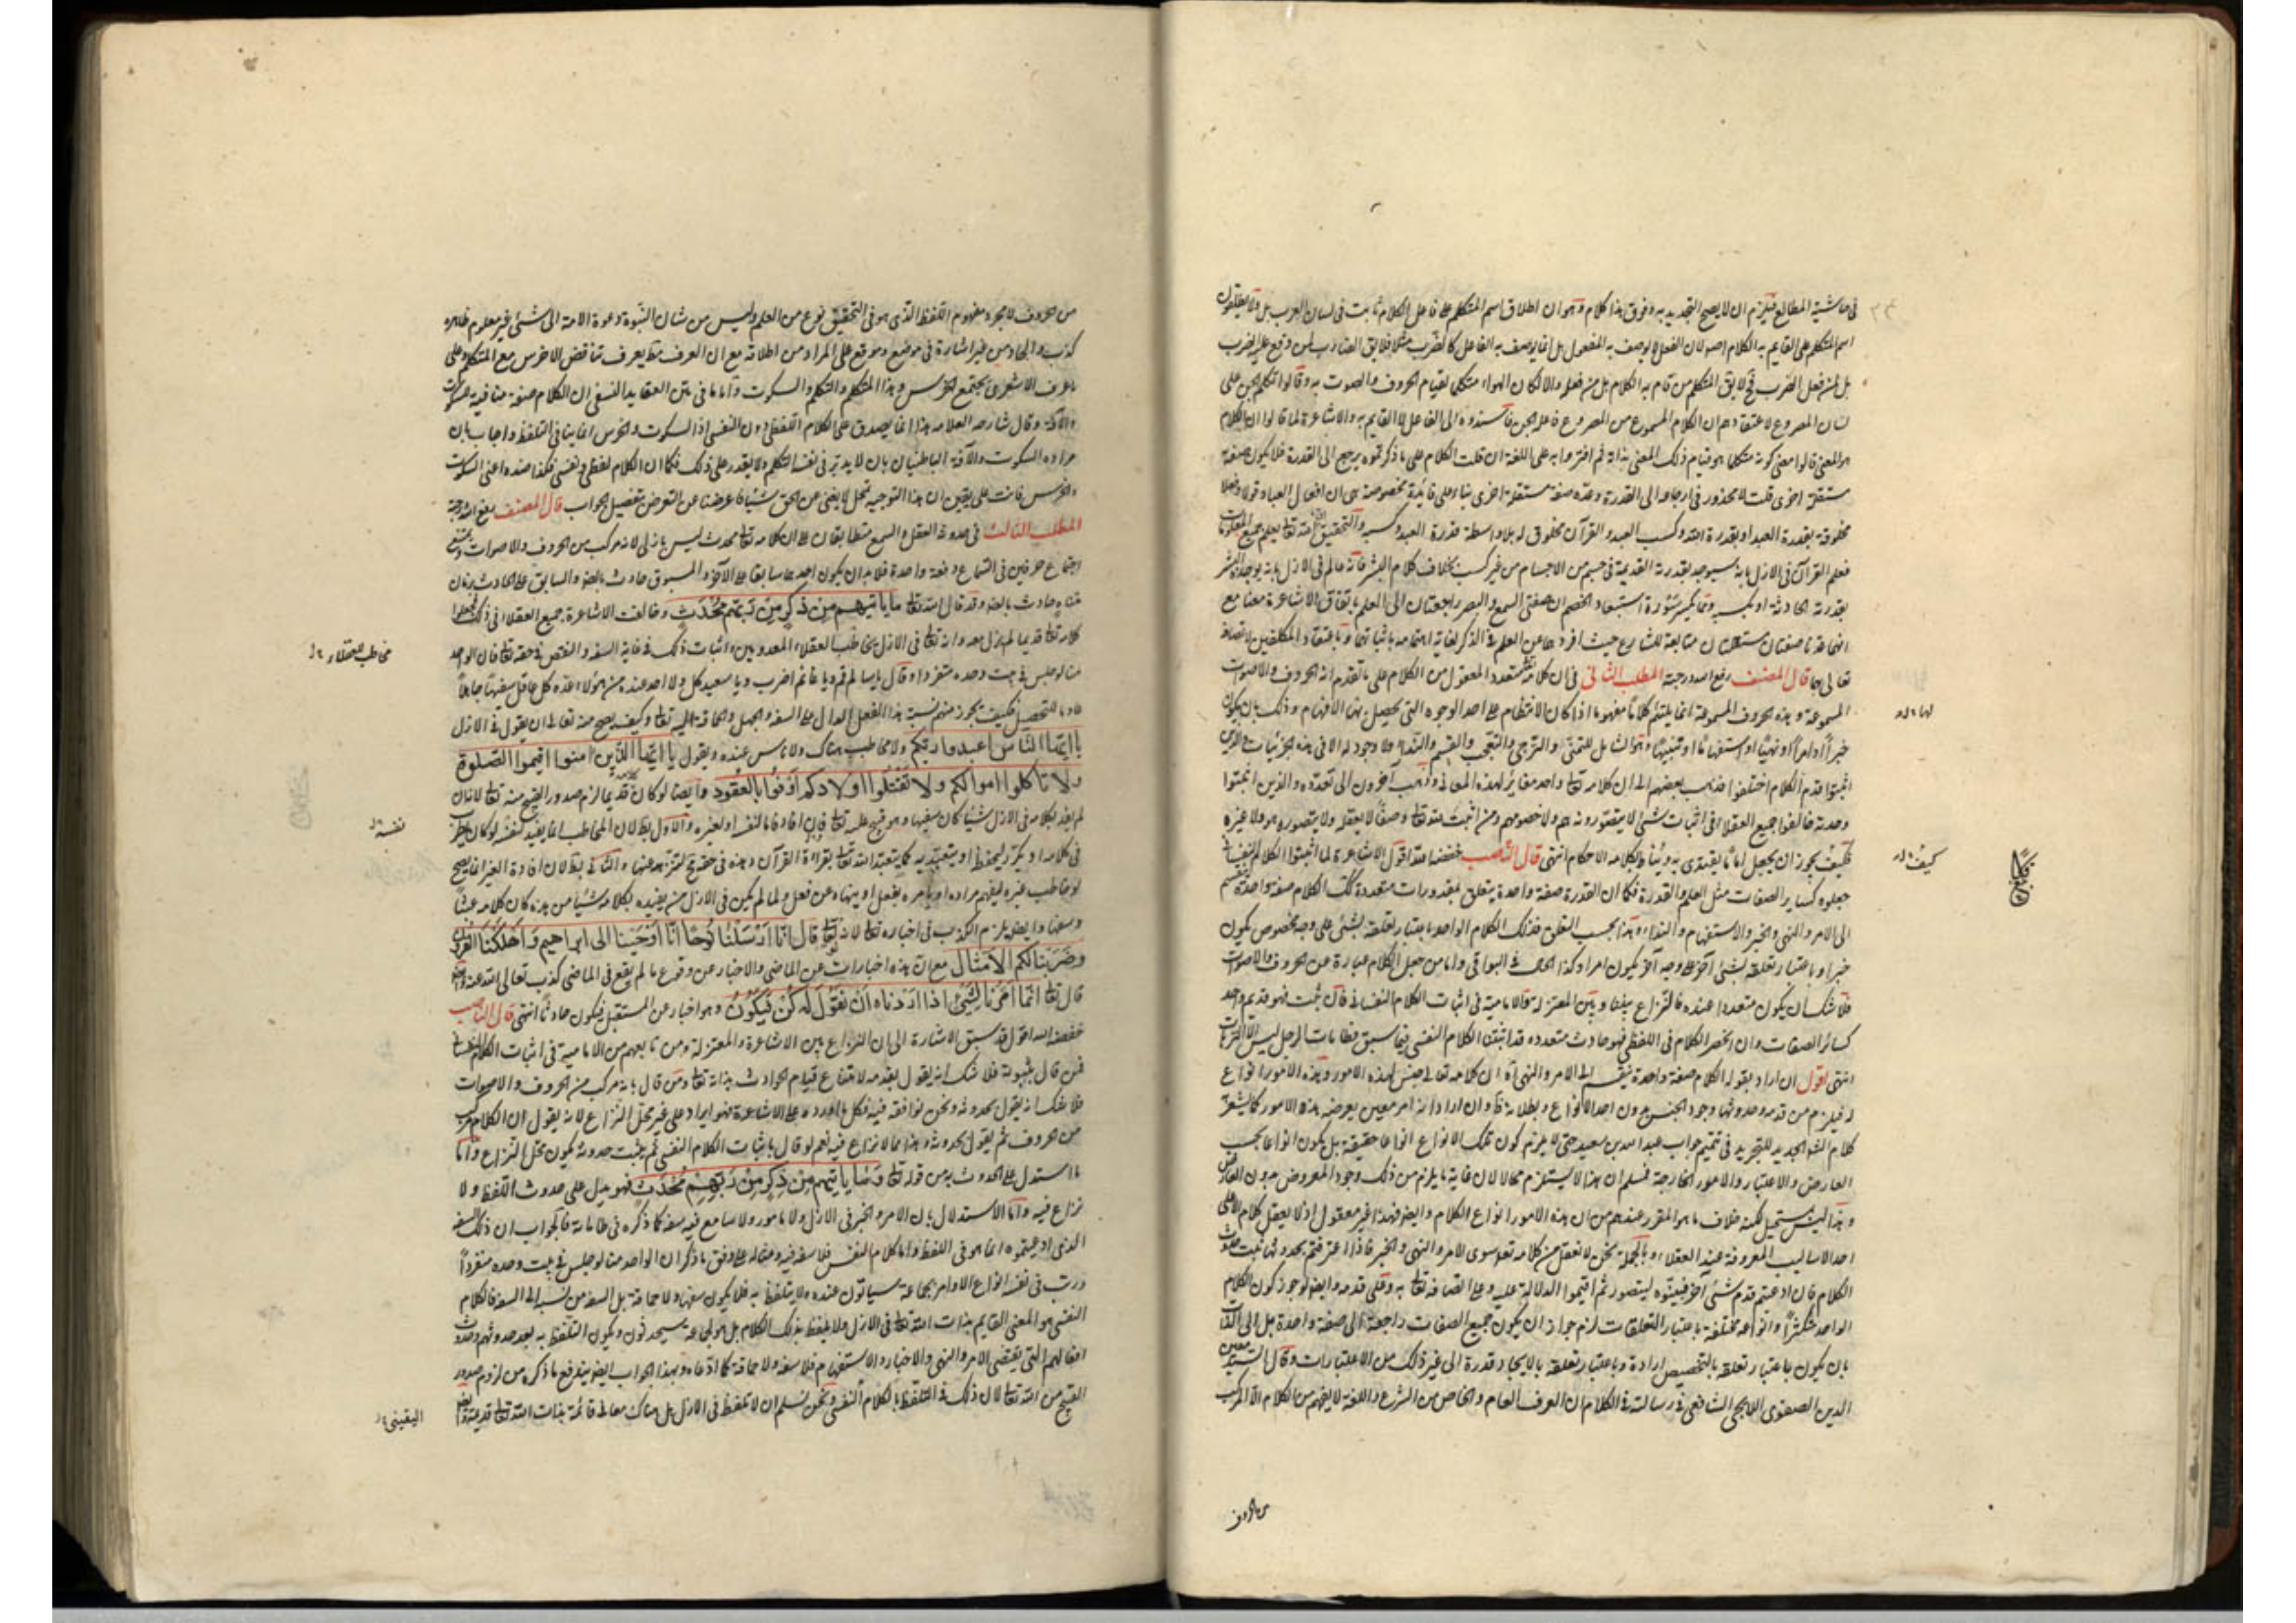 في حاشية المطالع فيلزم ان لا يصح التحديد به وفوق هذا كلام وهو ان اطلاق اسم المتكلم على فاعل الكلام ثابت في لسان العرب بل ولا يطلقون
اسم المتكلم على القايم به الكلام اصه لان الفعل لا يوصف به المفعول بل انما يوصف به الفاعل كالضرب مثلا فلا يق الضارب لمن وقع عليه الضرب
بل لمن فعل الضرب فح لا يق المتكلم من قام به الكلام بل من فعله والا لكان الهواء متكلما لقيام الحروف والصوت به وقالوا تكلم الجن على
لسان المصروع لاعتقادهم ان الكلام المسموع من المصروع فاعله الجن فاسندوه الى الفاعل لا القايم به والاشاعرة لما قالوا ان الكلام
هو المعنى قالوا معنى كونه متكلما هو قيام ذلك المعنى بذاته ثم افتروا به على اللغة ان قلت الكلام على ما ذكرتموه يرجع الى القدرة فلا يكون صفة
مستقلة اخرى قلت لا محذور في ارجاعه الى القدرة وعده صفة مستقلة اخرى بناء على فائدة مخصوصة هي ان افعال العباد قولا وفعلا
مخلوقة بقدرة العبد او بقدرة الله وكسب العبد والقرآن مخلوق له بلا واسطة قدرة العبد وكسبه والتحقيق انه تعالى يعلم جميع المعلومات
فعلم القرآن في الازل بانه سيوجد بقدرته القديمة في جسم من الاجسام من غير كسب بخلاف كلام البشر فانه عالم في الازل بانه يوجده البشر
بقدرته الحادثة او بكسبه ومما يكسر سورة استبعاد الخصم ان صفتي السمع والبصر راجعتان الى العلم باتفاق الاشاعرة معنا مع
انهما عدتا صفتان مستقلتان متابعة للشارع حيث افردهما عن العلم في الذكر لغاية اهتمامه باثباتهما وباعتقاد المكلفين لاتصافه
تعالى بهما قال المصنف رفع الله درجته المطلب الثاني في ان كلامه تعالى متعدد المعقول من الكلام على ما تقدم انه الحروف والاصوات
المسموعة وهذه الحروف المسموعة انما يلتئم كلاما مفهوما اذا كان الانتظام على احد الوجوه التي يحصل بها الافهام وذلك بان يكون
لها ۲ لو
خبرا او امرا او نهيا او استفهاما او تنبيها وهو الشامل للتمني والترجي والتعجب والقسم والنداء ولا وجود له الا في هذه الجزئيات والذين
اثبتوا قدم الكلام اختلفوا فذهب بعضهم الى ان كلامه تعالى واحد مغاير لهذه المعاني وذهب آخرون الى تعدده والذين اثبتوا
وحدته خالفوا جميع العقلاء في اثبات شئ لا يتصورونه هم ولا خصومهم ومن اثبت لله تعالى وصفا لا يعقله ولا يتصوره هو ولا غيره
فكيف يجوز ان يجعل اماما يقتدى به ويناط بكلامه الاحكام انتهى قال الناصب خفضه الله اقول الاشاعرة لما اثبتوا الكلام النفساني
كيف ۲ لر
جعلوه كساير الصفات مثل العلم والقدرة فكما ان القدرة صفة واحدة يتعلق بمقدورات متعددة كك الكلام صفة واحدة ينقسم
الى الامر والنهي والخبر والاستفهام والنداء وهذا بحسب التعلق فذلك الكلام الواحد باعتبار تعلقه بشئ على وجه مخصوص يكون
خبرا وباعتبار تعلقه بشئ آخر على وجه آخر يكون امرا وكذا الحال في البواقي واما من جعل الكلام عبارة عن الحروف والاصوات
فلا شك ان يكون متعددا عنده فالنزاع بيننا وبين المعتزلة والامامية في اثبات الكلام النفساني فان ثبت فهو قديم واحد
كسائر الصفات وان انحصر الكلام في اللفظي فهو حادث متعدد وقد اثبتنا الكلام النفسي فيما سبق فطامات الرجل ليس الا الترهات
انتهى اقول ان اراد بقوله الكلام صفة واحدة ينقسم الى الامر والنهي آه ان كلامه تعالى جنس لهذه الامور وهذه الامور انواع
له فيلزم من قدمه وحدوثها وجود الجنس بدون احد الانواع وبطلانه ظ وان اراد انه امر معين يعرضه هذه الامور كما يشعر
كلام الشه الجديد للتجريد في تتميم جواب عبد الله بن سعيد حتى لا يلزم كون تلك الانواع انواعا حقيقة بل يكون انواعا بحسب
العارض والاعتبار والامور الخارجة فمسلم ان هذا لا يستلزم محالا لان غاية ما يلزم من ذلك وجود المعروض بدون العارض
وهذا ليس بمستحيل لكنه خلاف ما هو المقرر عندهم من ان هذه الامور انواع الكلام وايضا فهذا غير معقول اذ لا يعقل كلام الا على
احد الاساليب المعروفة عند العقلاء وبالجملة نحن لا نعقل من كلامه تعالى سوى الامر والنهي والخبر فاذا اعترفتم بحدوثها ثبت حدوث
الكلام فان ادعيتم قدم شئ آخر فبينوه ليتصور ثم اقيموا الدلالة عليه وعلى اتصافه تعالى به وعلى قدمه وايضا لو جوز كون الكلام
الواحد متكثرا وانواعه مختلفة باعتبار التعلقات لزم جواز ان يكون جميع الصفات راجعة الى صفة واحدة بل الى الذات
بان يكون باعتبار تعلقه بالتخصيص ارادة وباعتبار تعلقه بالايجاد قدرة الى غير ذلك من الاعتبارات وقال السيد معين
الدين الصفوي اللايجي الشافعي في رسالته في الكلام ان العرف العام والخاص من الشرع واللغة لا يفهم من الكلام الا المركب
من حروف
من حروف لا مجرد مفهوم اللفظ الذي هو في التحقيق نوع من العلم وليس من شان النبوة دعوة الامة الى شئ غير معلوم ظاهره
كذب والحاد من غير اشارة في موضع وموقع على المراد من اطلاقه مع ان العرف مط يعرف تناقض الاخرس مع المتكلم وعلى
ما عرف الاشعري يجتمع الخرس وهذا المتكلم والتكلم والسكوت واما ما في متن العقايد النسفي ان الكلام صفة منافية للسكوت
والآفة وقال شارحه العلامة هذا انما يصدق على الكلام اللفظي دون النفسي اذ السكوت والخرس انما ينافي التلفظ واجاب بان
مراده السكوت والآفة الباطنيان بان لا يدبر في نفسه التكلم ولا يقدر على ذلك فكما ان الكلام لفظي ونفسي فكذا ضده اعني السكوت
والخرس فانت على يقين ان هذا التوجيه تمحل لا يغني من الحق شيئا فاعرضنا عن التعرض بتفصيل الجواب قال المصنف رفع الله درجته
المطلب الثالث في حدوثه العقل والسمع متطابقان على ان كلامه تعالى محدث ليس بازلي لانه مركب من الحروف والاصوات ويمتنع
اجتماع حرفين في السماع دفعة واحدة فلا بد ان يكون احدهما سابقا على الآخر والمسبوق حادث بالضرورة والسابق على الحادث بزمان
متناه حادث بالضرورة وقد قال الله تعالى ما ياتيهم من ذكر من ربهم محدث وخالفت الاشاعرة جميع العقلاء في ذلك فجعلوا
كلامه تعالى قديما لم يزل معه وانه تعالى في الازل يخاطب العقلاء المعدومين واثبات ذلك في غاية السفه والنقص في حقه تعالى فان الواحد
مخاطب للعقلاء ۲ لر
منا لو جلس في بيت وحده منفردا وقال يا سالم قم ويا غانم اضرب ويا سعيد كل ولا احد عنده من هؤلاء عده كل عاقل سفيها جاهلا
عادما للتحصيل فكيف يجوز منهم نسبة هذا الفعل الدال على السفه والجهل والحماقة اليه تعالى وكيف يصح منه تعالى ان يقول في الازل
يا ايها الناس اعبدوا ربكم ولا مخاطب هناك ولا ناس عنده ويقول يا ايها الذين امنوا اقيموا الصلوة
ولا تاكلوا اموالكم ولا تقتلوا اولادكم اوفوا بالعقود وايضا لو كان كلامه قديما لزم صدور القبيح منه تعالى لانه ان
لم يفد بكلامه في الازل شيئا كان سفيها وهو قبيح عليه تعالى وان افاد فاما لنفسه او لغيره والاول بط لان المخاطب انما يفيد نفسه لو كان يطرب
نفسه ۲ لر
في كلامه او يكرر ليحفظ او يتعبد به كما يتعبد الله تعالى بقراءة القرآن وهذه في حقه مح لتنزهه عنها والثاني بط لان افادة الغير انما يصح
لو خاطب غيره ليفهم مراده او يامره بفعل او ينهاه عن فعل ولما لم يكن في الازل من يفيده بكلامه شيئا من هذه كان كلامه عبثا
وسفها وايضا يلزم الكذب في اخباره تعالى لانه تعالى قال انا ارسلنا نوحا انا اوحينا الى ابراهيم واهلكنا القرون
وضربنا لكم الامثال مع ان هذه اخبارات عن الماضي والاخبار عن وقوع ما لم يقع في الماضي كذب تعالى الله عنه وايضا
قال تعالى انما امرنا لشئ اذا اردناه ان نقول له كن فيكون وهو اخبار عن المستقبل فيكون حادثا انتهى قال الناصب
خفضه الله اقول قد سبق الاشارة الى ان النزاع بين الاشاعرة والمعتزلة ومن تابعهم من الامامية في اثبات الكلام النفساني
فمن قال بثبوته فلا شك انه يقول بقدمه لامتناع قيام الحوادث بذاته تعالى ومن قال بانه مركب من الحروف والاصوات
فلا شك انه يقول بحدوثه ونحن نوافقه فيه فكل ما اورده على الاشاعرة فهو ايراد على غير محل النزاع لانه يقول ان الكلام مركب
من الحروف ثم يقول بحدوثه وهذا مما لا نزاع فيه نعم لو قال باثبات الكلام النفسي ثم يثبت حدوثه يكون محل النزاع واما
ما استدل على الحدوث به من قوله تعالى وما ياتيهم من ذكر من ربهم محدث فهو يدل على حدوث اللفظ ولا
نزاع فيه واما الاستدلال بان الامر والخبر في الازل ولا مامور ولا سامع فيه سفه كما ذكره في طاماته فالجواب ان ذلك السفه
الذي ادعيتموه انما هو في اللفظ واما كلام النفس فلا سفه فيه ومثاله على وفق ما ذكر ان الواحد منا لو جلس في بيت وحده منفردا
ورتب في نفسه انواع الاوامر لجماعة سياتون عنده ولا يتلفظ به فلا يكون سفها ولا حماقة بل السفه من نسبه الى السفه فالكلام
النفسي هو المعنى القايم بذات الله تعالى في الازل ولا يتلفظ بذلك الكلام بل هو لجماعة سيحدثون ويكون التلفظ به بعد حدوثهم وحدوث
افعالهم التي يقتضي الامر والنهي والاخبار والاستفهام فلا سفه ولا حماقة كما ادعاه وبهذا الجواب ايضا يندفع ما ذكره من لزوم صدور
القبيح من الله تعالى لان ذلك في التلفظ بالكلام النفسي ونحن نسلم ان لا تلفظ في الازل بل هناك معاني قائمة بذات الله تعالى قديمة وايضا
اليقيني ۲ لر